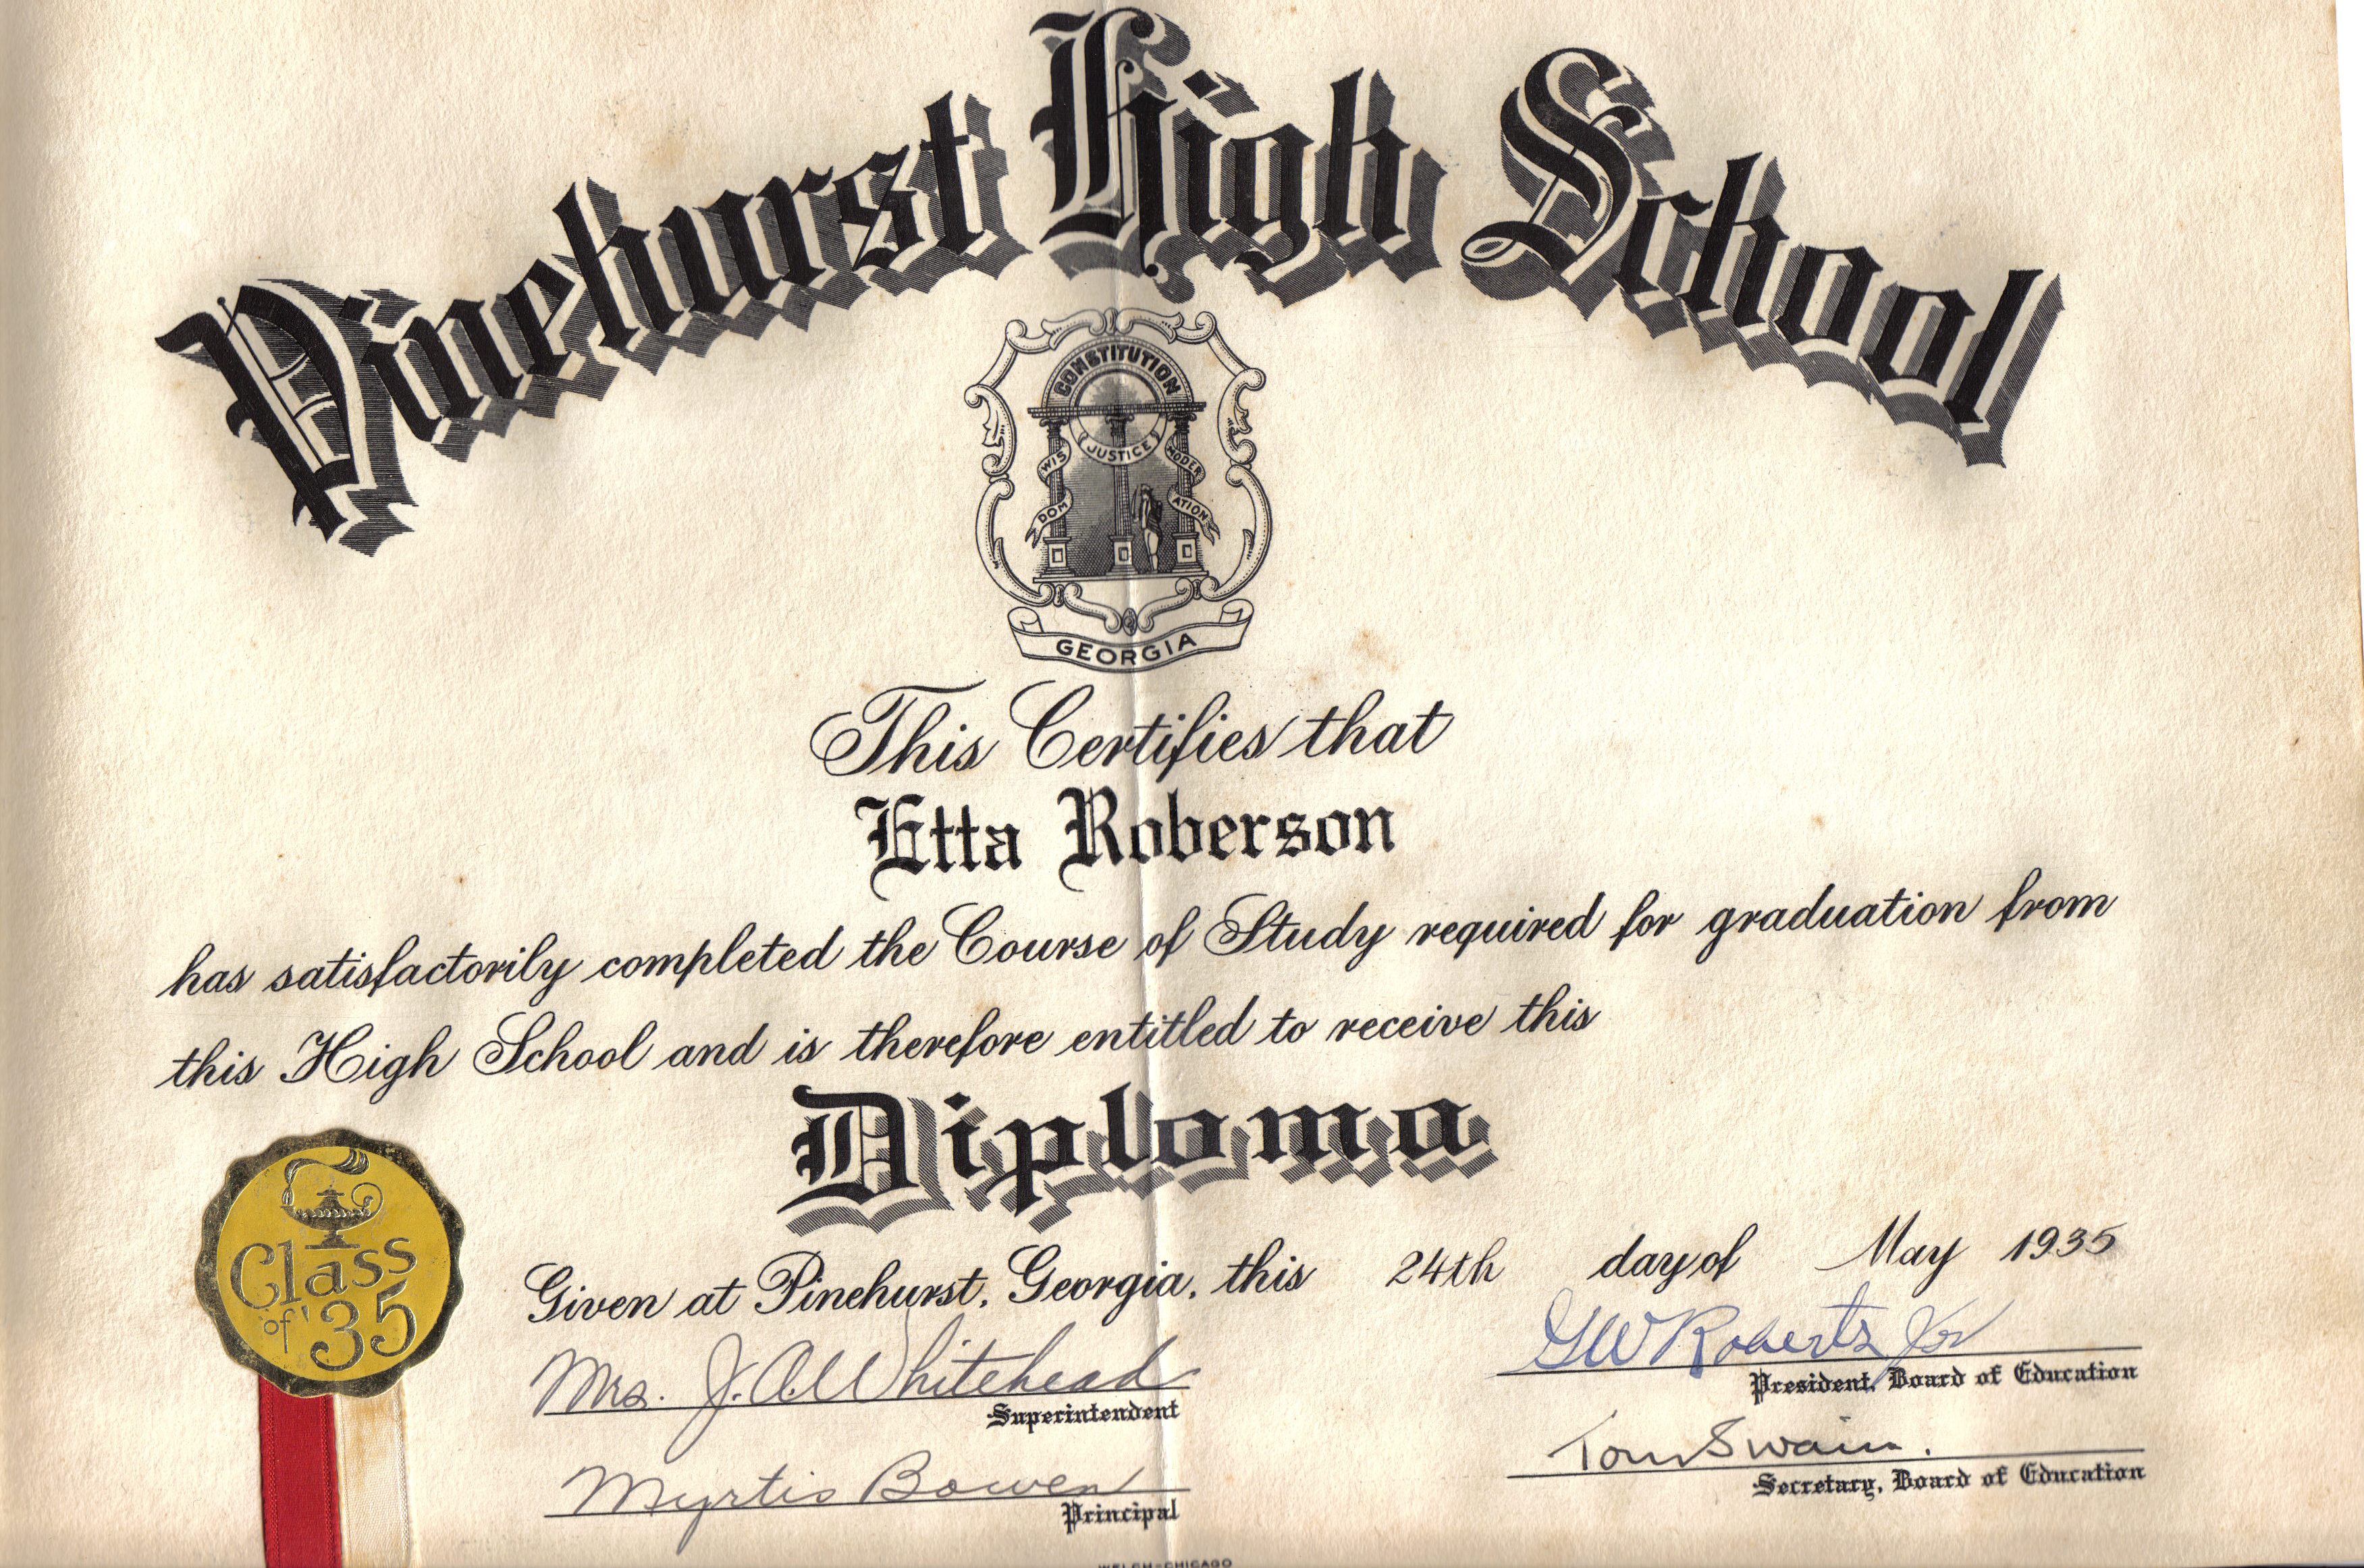 Pinehurst High School
CONSTITUTION
WIS JUSTICE MODER
DOM ATION
GEORGIA
This Certifies that
Etta Roberson
has satisfactorily completed the Course of Study required for graduation from
this High School and is therefore entitled to receive this
Diploma
Class
of '35
Given at Pinehurst, Georgia, this 24th day of May 1935
Mrs. J. A. Whitehead
Superintendent
GW Roberts Jr
President, Board of Education
Myrtis Bowen
Principal
Tom Swain.
Secretary, Board of Education
WELCH-CHICAGO